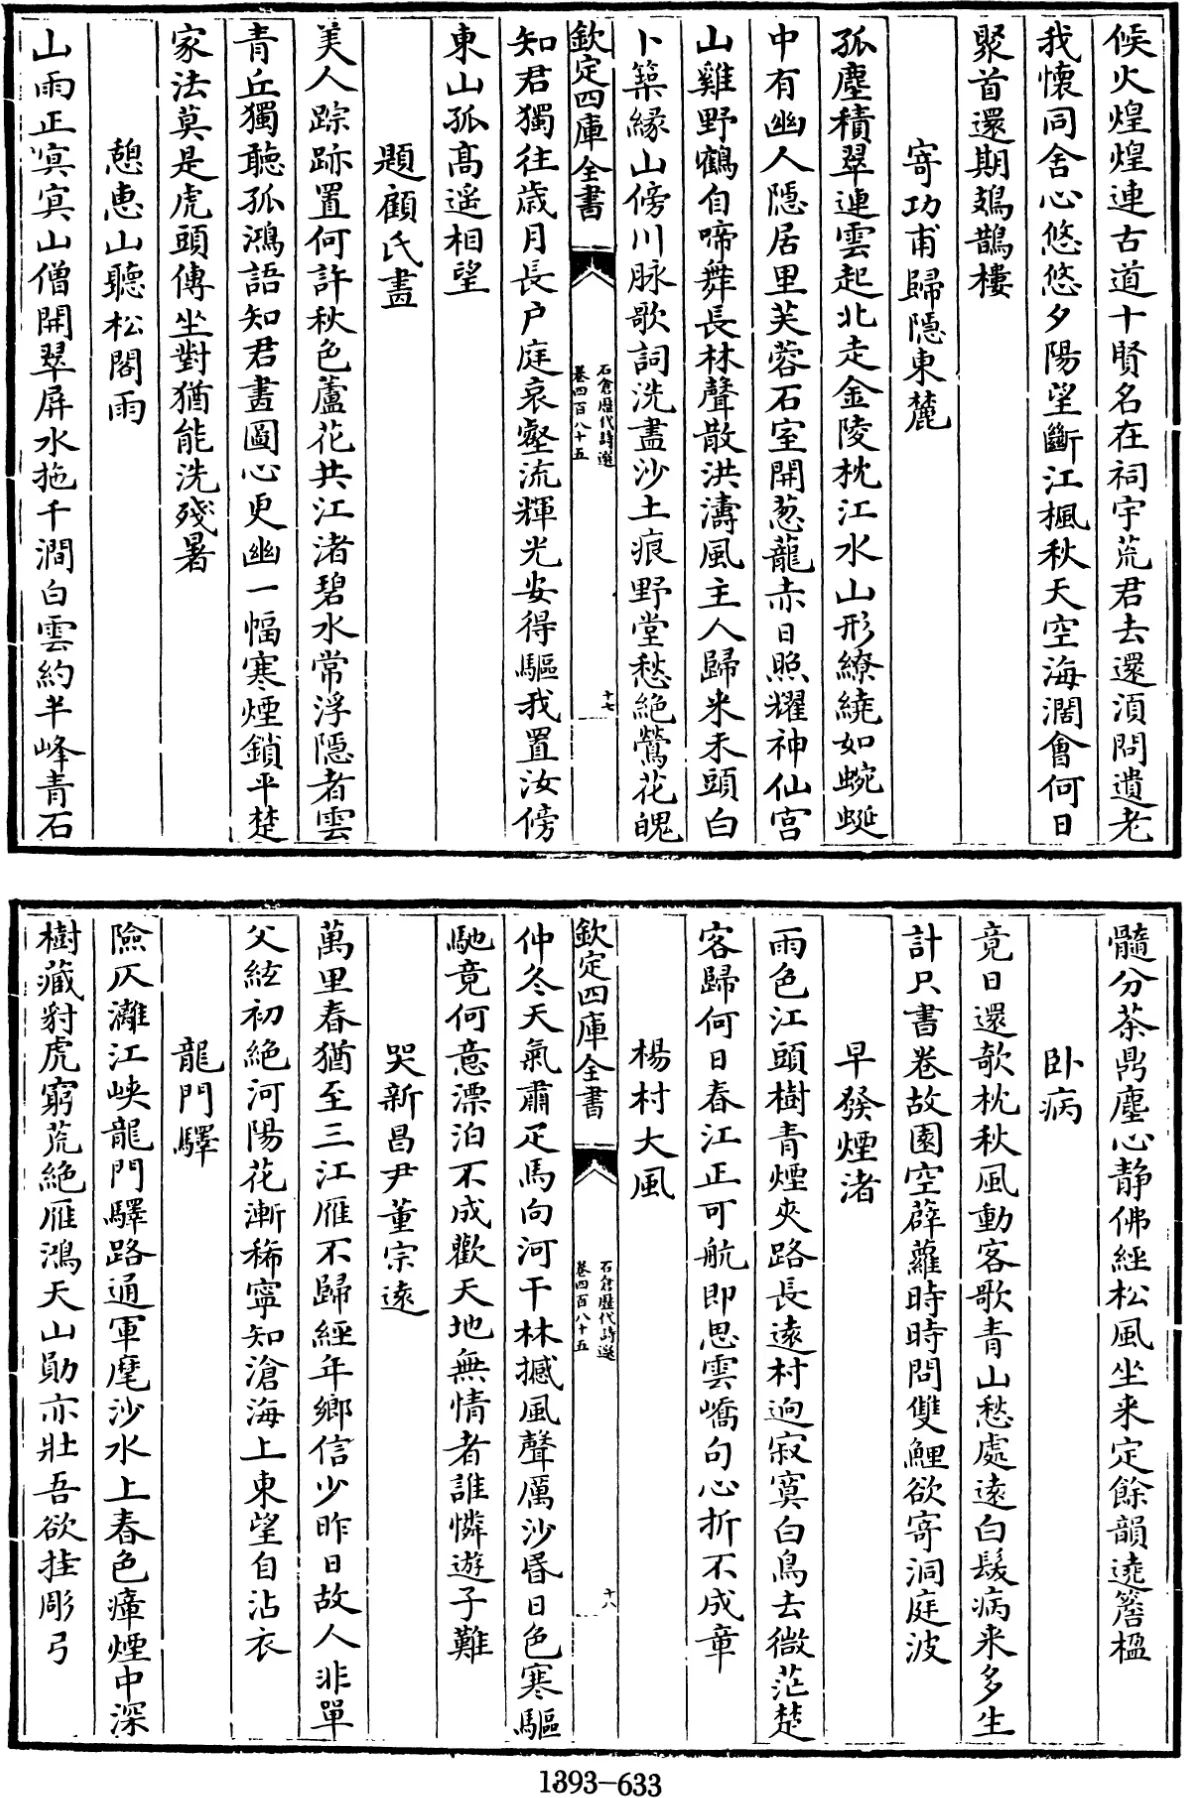 候火煌煌連古道十賢名在祠宇荒君去還湏問遺老
我懷同舍心悠悠夕陽望斷江楓秋天空海濶會何日
聚首還期鳷鵲樓
寄功甫歸隱東麓
孤塵積翠連雲起北走金陵枕江水山形繚繞如蜿蜒
中有幽人隱居里芙蓉石室開葱蘢赤日照耀神仙宫
山雞野鶴自啼舞長林聲散洪濤風主人歸来未頭白
卜築縁山傍川脉歌詞洗盡沙土痕野堂愁絶鶯花魄
欽定四庫全書
石倉歴代詩選
卷四百八十五
十七
知君獨往歳月長户庭哀壑流輝光安得驅我置汝傍
東山孤髙遥相望
題顧氏畫
美人踪跡置何許秋色蘆花共江渚碧水常浮隱者雲
青丘獨聽孤鴻語知君畫圖心更幽一幅寒煙鎖平楚
家法莫是虎頭傳坐對猶能洗殘暑
憩恵山聽松閣雨
山雨正㝠㝠山僧開翠屏水拖千澗白雲約半峰青石
髓分茶鼎塵心静佛經松風坐来定餘韻遶簷楹
卧病
竟日還欹枕秋風動客歌青山愁處遠白髮病来多生
計只書卷故園空薜蘿時時問雙鯉欲寄洞庭波
早發煙渚
雨色江頭樹青煙夾路長遠村逈寂寞白鳥去微茫楚
客歸何日春江正可航即思雲嶠句心折不成章
楊村大風
欽定四庫全書
石倉歴代詩選
卷四百八十五
十八
仲冬天氣肅疋馬向河干林撼風聲厲沙昏日色寒驅
馳竟何意漂泊不成歡天地無情者誰憐遊子難
哭新昌尹董宗遠
萬里春猶至三江雁不歸經年鄉信少昨日故人非單
父絃初絶河陽花漸稀寧知滄海上東望自沾衣
龍門驛
險仄灘江峽龍門驛路通軍麾沙水上春色瘴煙中深
樹藏豺虎窮荒絶雁鴻天山勛亦壯吾欲挂彫弓
1393-633